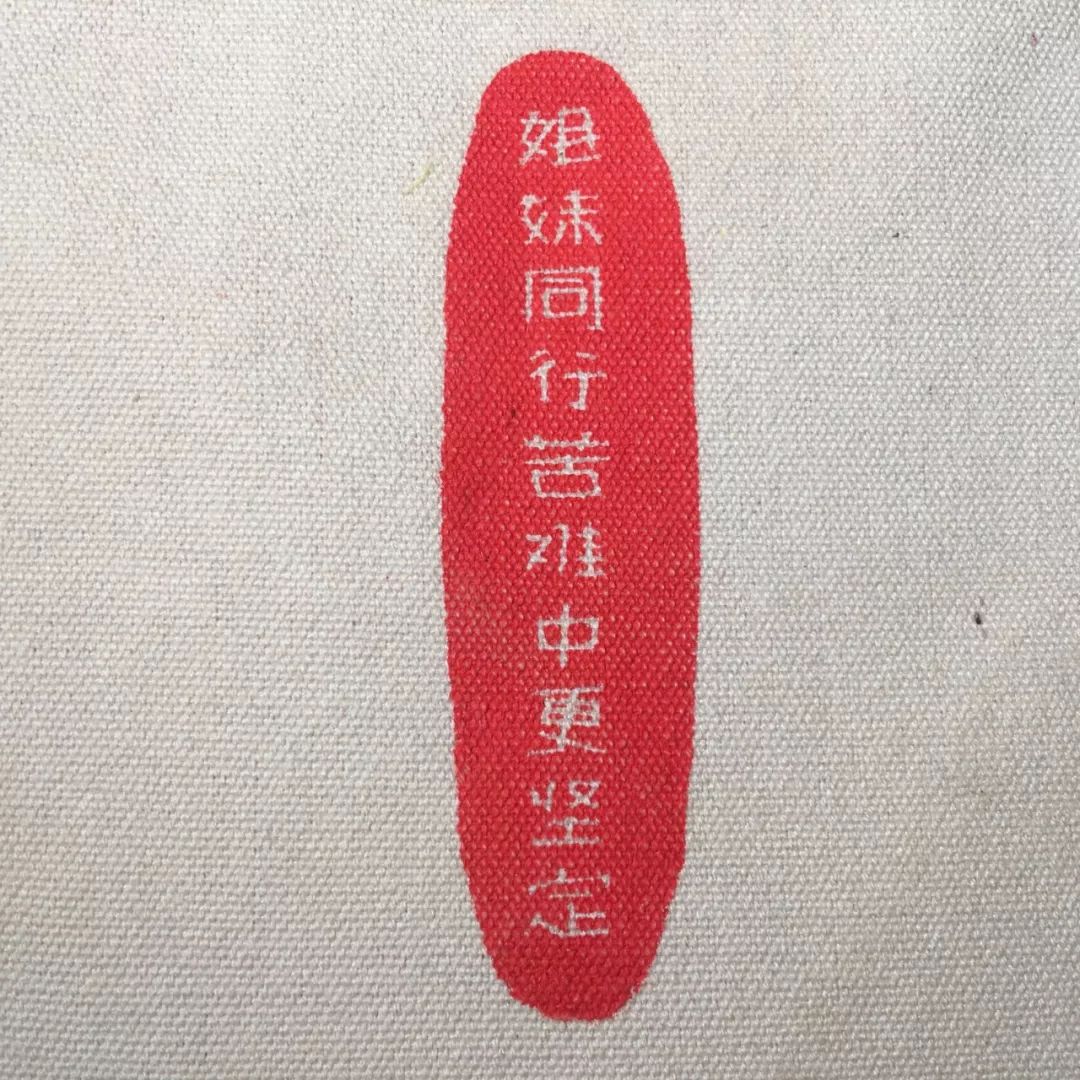 姐妹同行苦难中更坚定